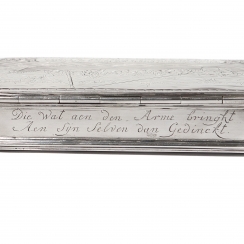 Die wat aen den Arme bringkt
Aen Syn Selven dan Gedinckt.